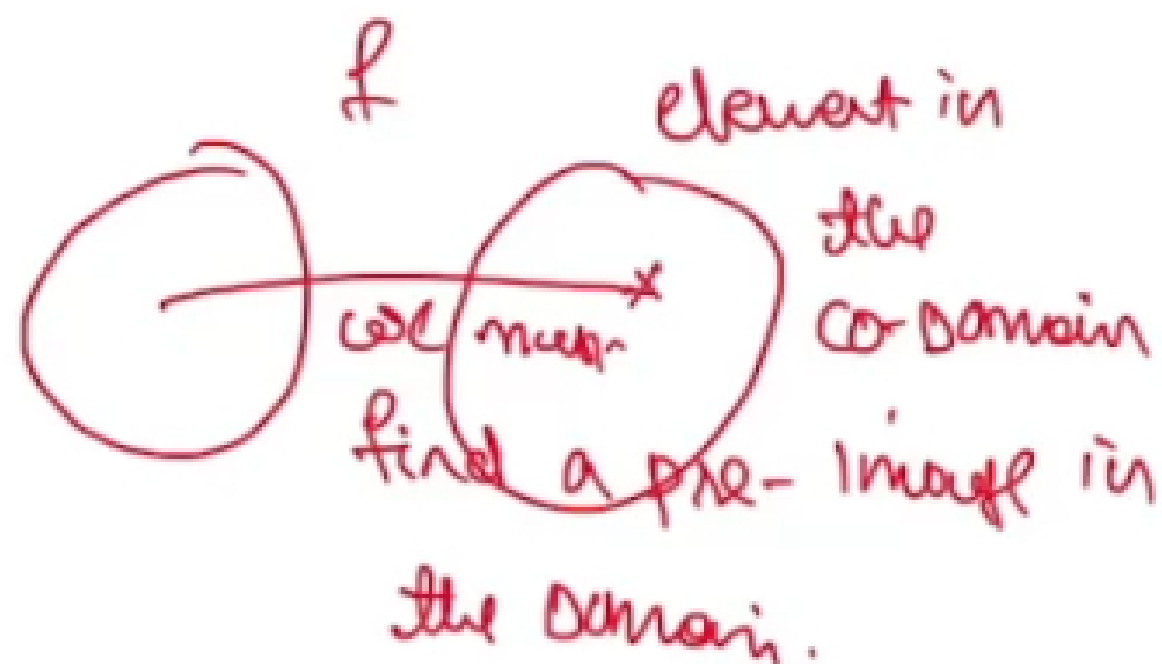 f
element in
the
co-Domain
we must
find a pre-image in
the Domain.